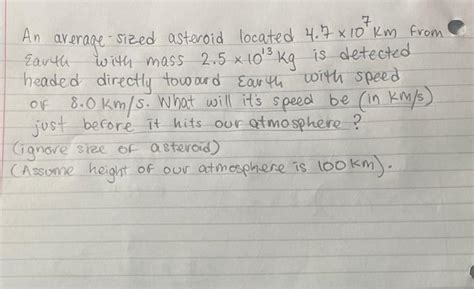 An average-sized asteroid located 4.7 × 10⁷ km from
Earth with mass 2.5 × 10¹³ kg is detected
headed directly toward Earth with speed
of 8.0 km/s. What will it's speed be (in km/s)
just before it hits our atmosphere?
(ignore size of asteroid)
(Assume height of our atmosphere is 100 km).